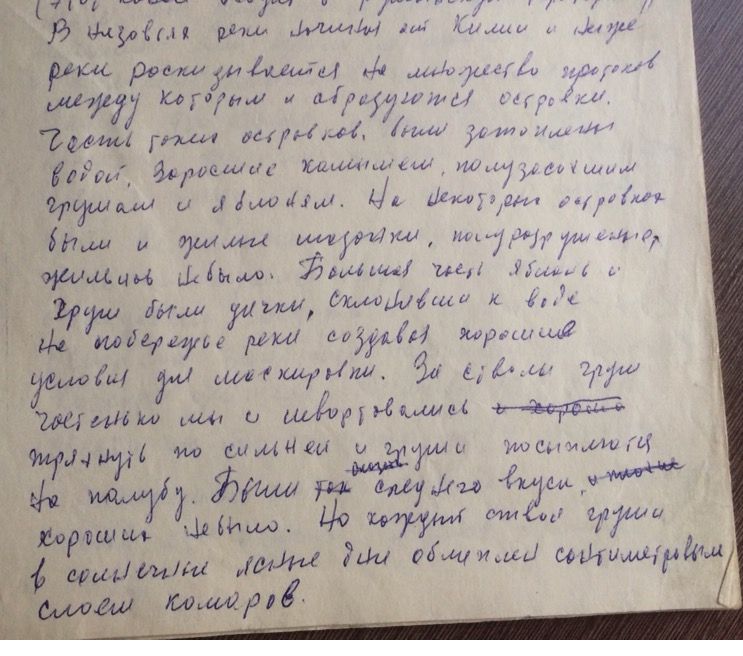 В низовья реки начиная от Килии и ниже
река роскидывается на множество протоков
между которым и образуются островки.
Часть таких островков были затоплены
водой. Заросшие камышем, полузасохшим
грушам и яблоням. На некоторых островках
были и жилые мазанки, полуразрушенные,
жильцов небыло. Большая часть яблонь и
Груш были дички, склонившись к воде
на побережье реки создавая хорошие
условия для маскировки. За стволы груш
частенько мы и швартовались и хорошо
тряхнуть по сильней и груши посыплются
на палубу. Были так среднего вкуса, и многие
хороших небыло. Но каждый ствол груши
в солнечные ясные дни облеплен сантиметровым
слоем комаров.